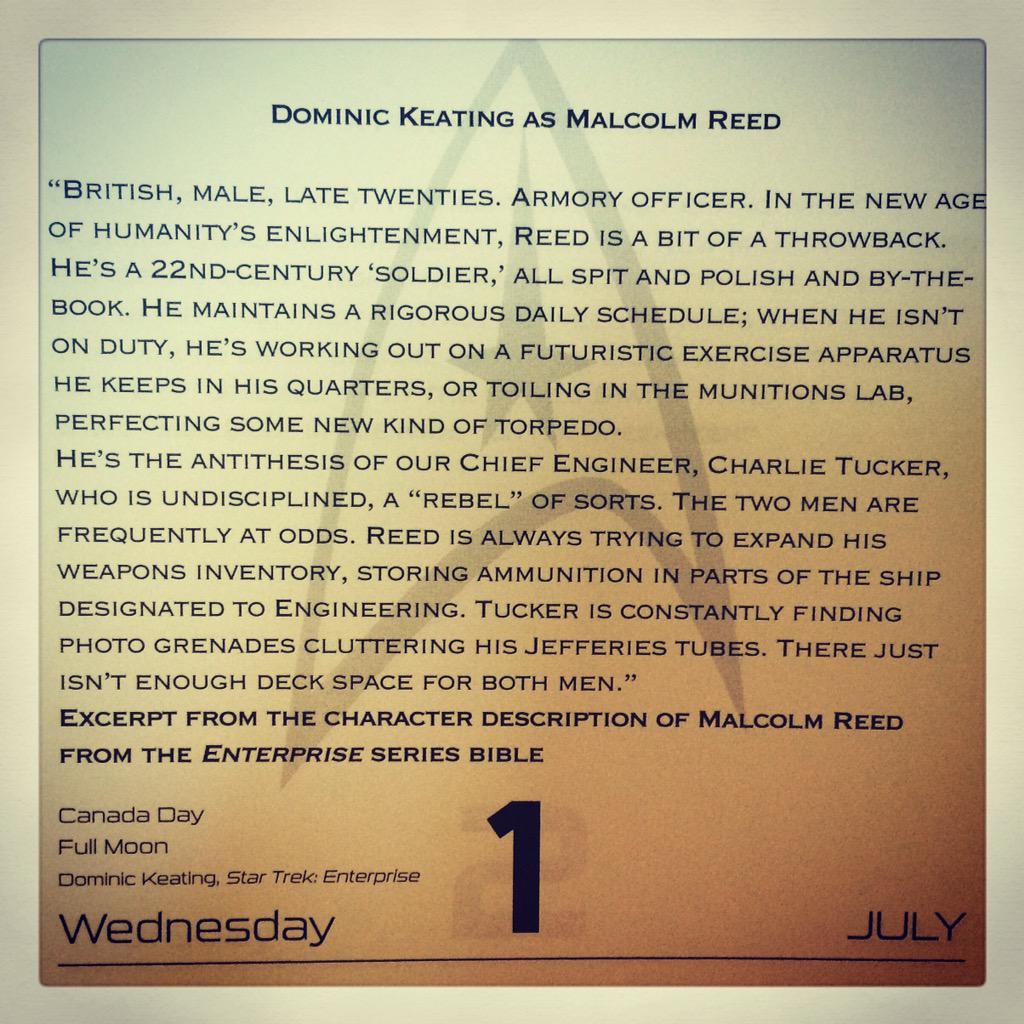 Dominic Keating as Malcolm Reed
“British, male, late twenties. Armory officer. In the new age
of humanity’s enlightenment, Reed is a bit of a throwback.
He’s a 22nd-century ‘soldier,’ all spit and polish and by-the-
book. He maintains a rigorous daily schedule; when he isn’t
on duty, he’s working out on a futuristic exercise apparatus
he keeps in his quarters, or toiling in the munitions lab,
perfecting some new kind of torpedo.
He’s the antithesis of our Chief Engineer, Charlie Tucker,
who is undisciplined, a “rebel” of sorts. The two men are
frequently at odds. Reed is always trying to expand his
weapons inventory, storing ammunition in parts of the ship
designated to Engineering. Tucker is constantly finding
photo grenades cluttering his Jefferies tubes. There just
isn’t enough deck space for both men.”
Excerpt from the character description of Malcolm Reed
from the Enterprise series bible
Canada Day
Full Moon
Dominic Keating, Star Trek: Enterprise
Wednesday 1 JULY